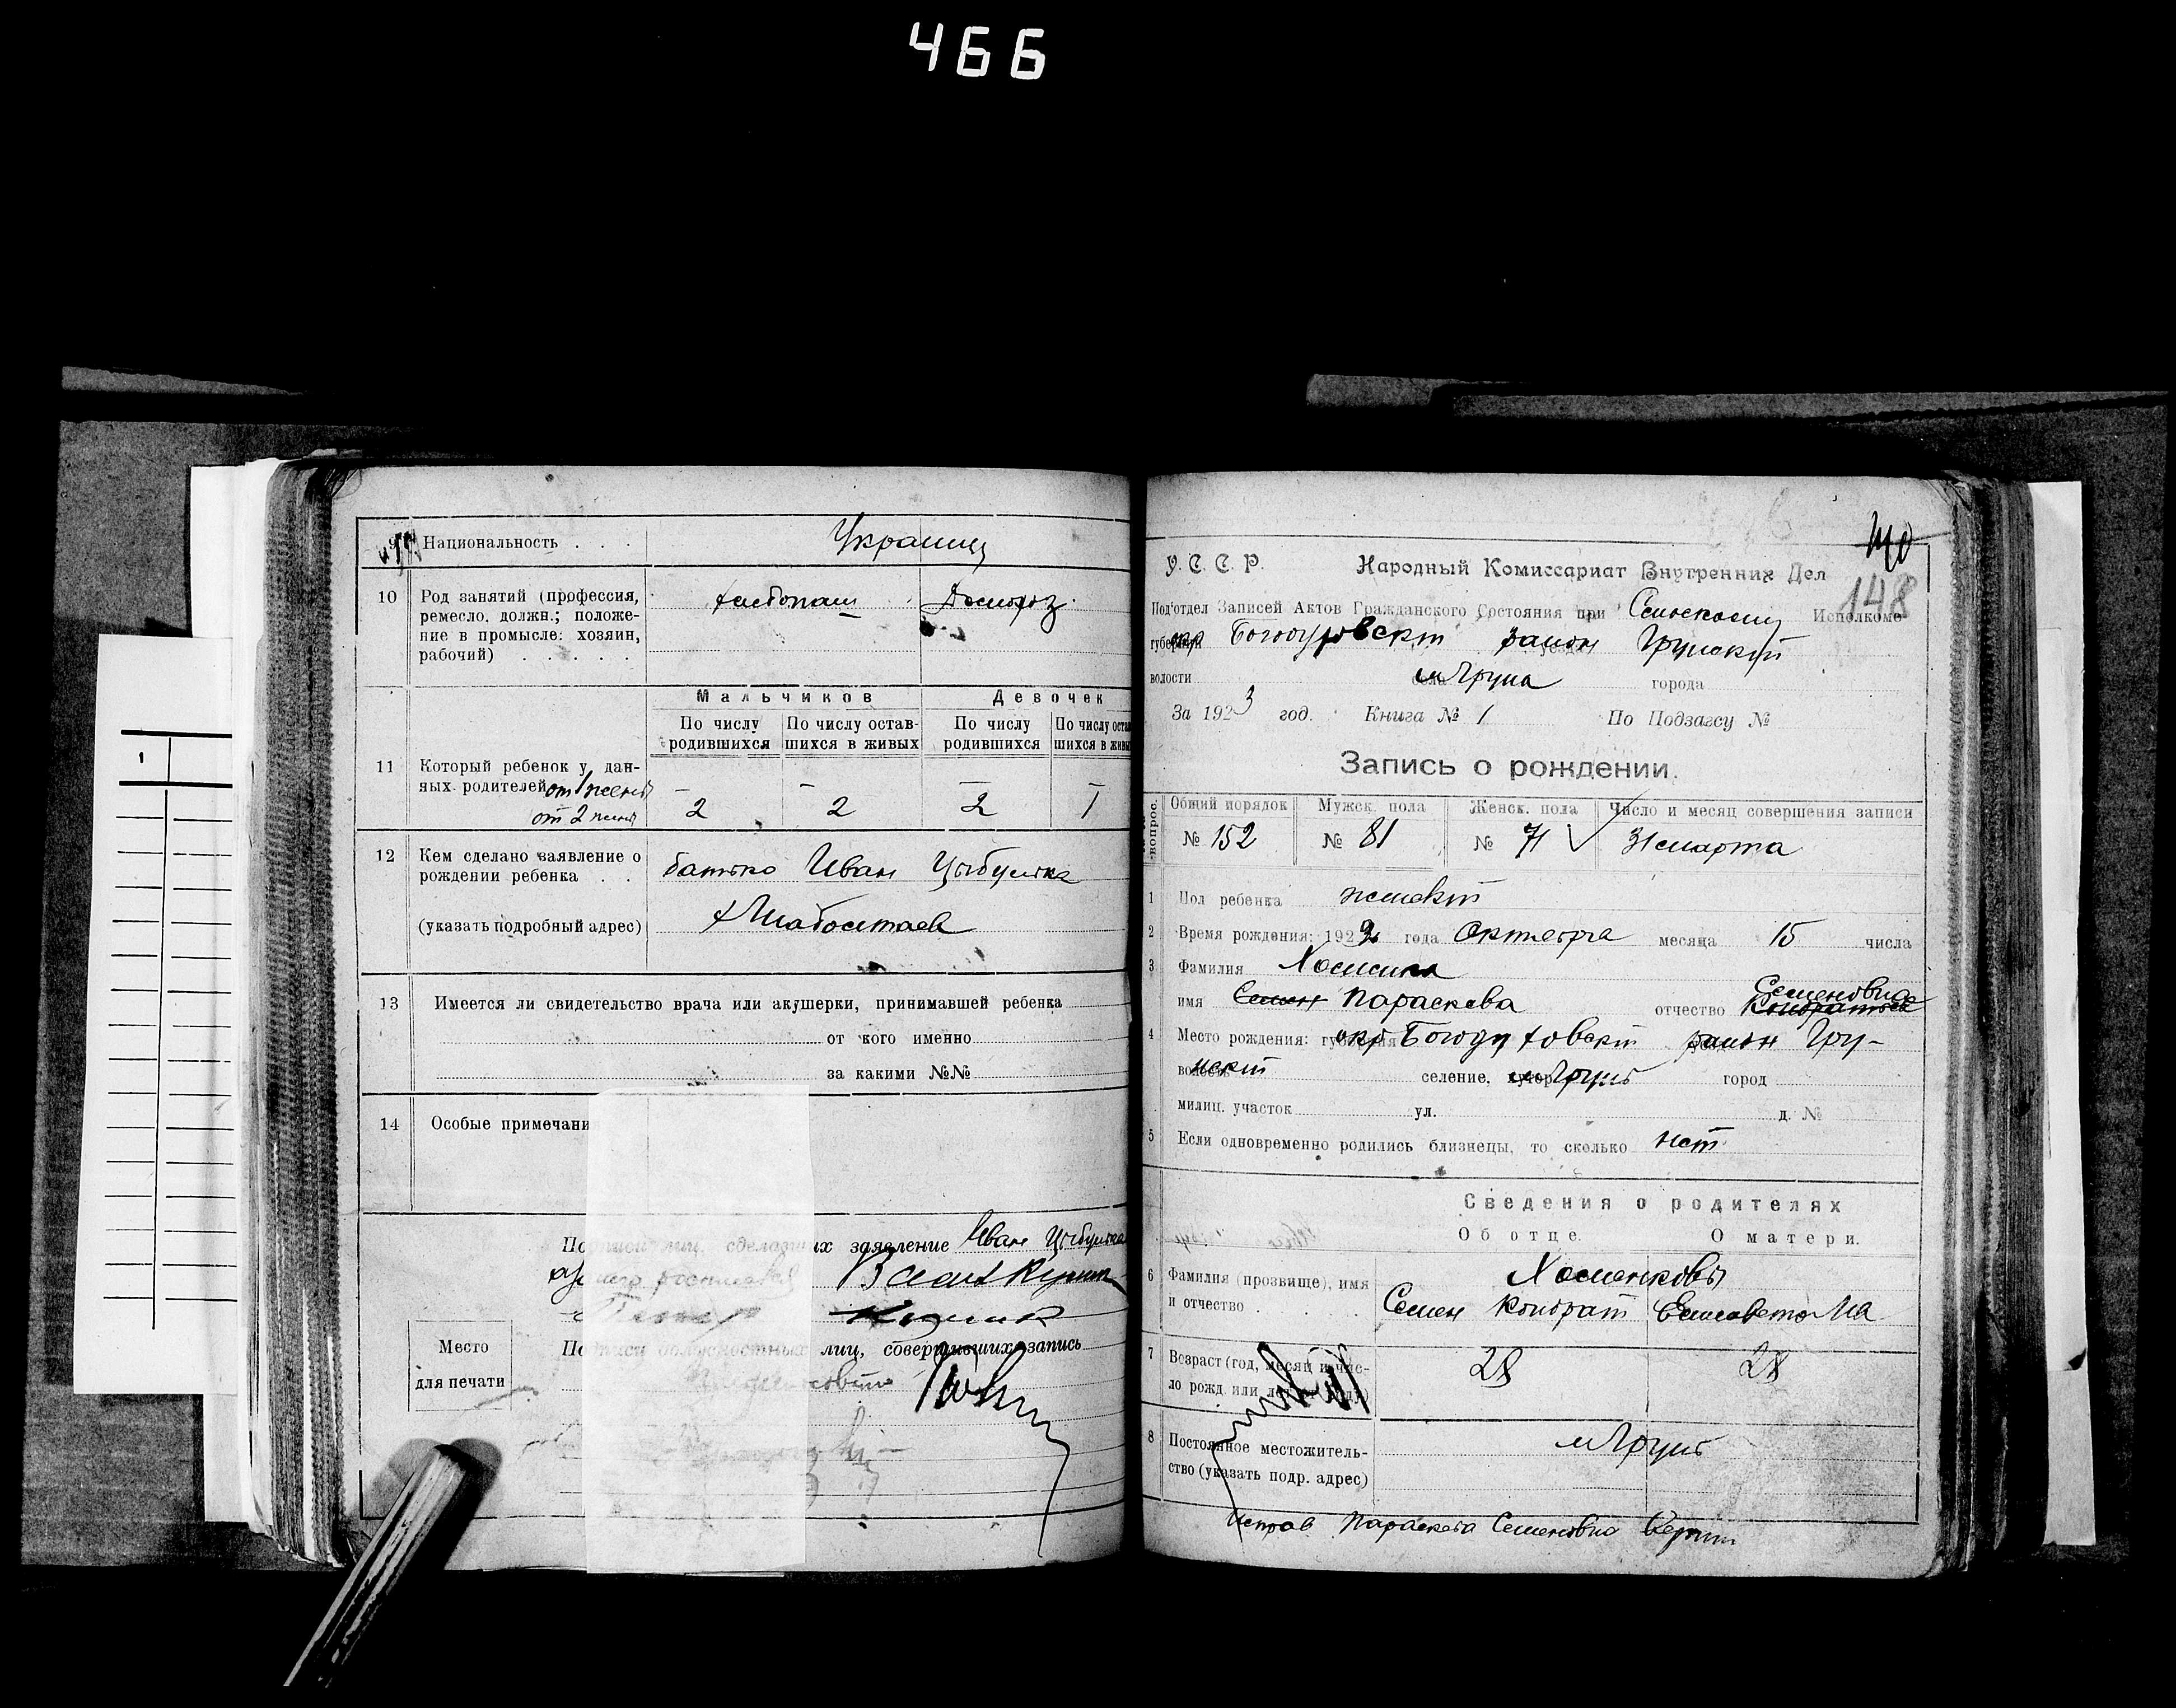 466
9 Национальность . . . Украинц
10 Род занятий (профессия,
ремесло, должн.; положе-
ние в промысле: хозяин,
рабочий) . . . . .
хлебопаш Домохоз
Мальчиков Девочек
По числу родившихся По числу остав-шихся в живых По числу родившихся По числу
11 Который ребенок у дан-
ных родителей от 1 жены
от 2 жены
2 2 2 1
12 Кем сделано заявление о
рождении ребенка . .
батько Иван Цыбулька
(указать подробный адрес)
13 Имеется ли свидетельство врача или акушерки, принимавшей ребенка
от кого именно
за какими №№
14 Особые примечани
их заявление Иван Цыбулька
Место
для печати
лиц, совершивших запись
140
У. С. С. Р. Народный Комиссариат Внутренних Дел
148
Под'отдел Записей Актов Гражданского Состояния при Исполкоме
губернии окр Богодуховский район Грунский
волости м Груна города
За 1923 год. Книга № 1 По Подзагсу №
Запись о рождении.
Общий порядок Мужск. пола Женск. пола Число и месяц совершения записи
№ 152 № 81 № 71 31 марта
1 Пол ребенка женский
2 Время рождения: 1922 года Октября месяца 15 числа
3 Фамилия Хоменко
имя Семен Параскева отчество Семеновна Кондратьев
4 Место рождения: губерния окр Богодуховский район Гру-
волость нский селение, хутор м Грунь город
милиц. участок ул. д. №
5 Если одновременно родились близнецы, то сколько нет
Сведения о родителях
Об отце. О матери.
6 Фамилия (прозвище), имя
и отчество . . . .
Хоменковы
Семен Кондрат Елисавета
7 Возраст (год, месяц и чис-
ло рожд. или лет
28 28
8 Постоянное местожитель-
ство (указать подр. адрес)
м Грунь
Исправ Параскева Семеновна Верить